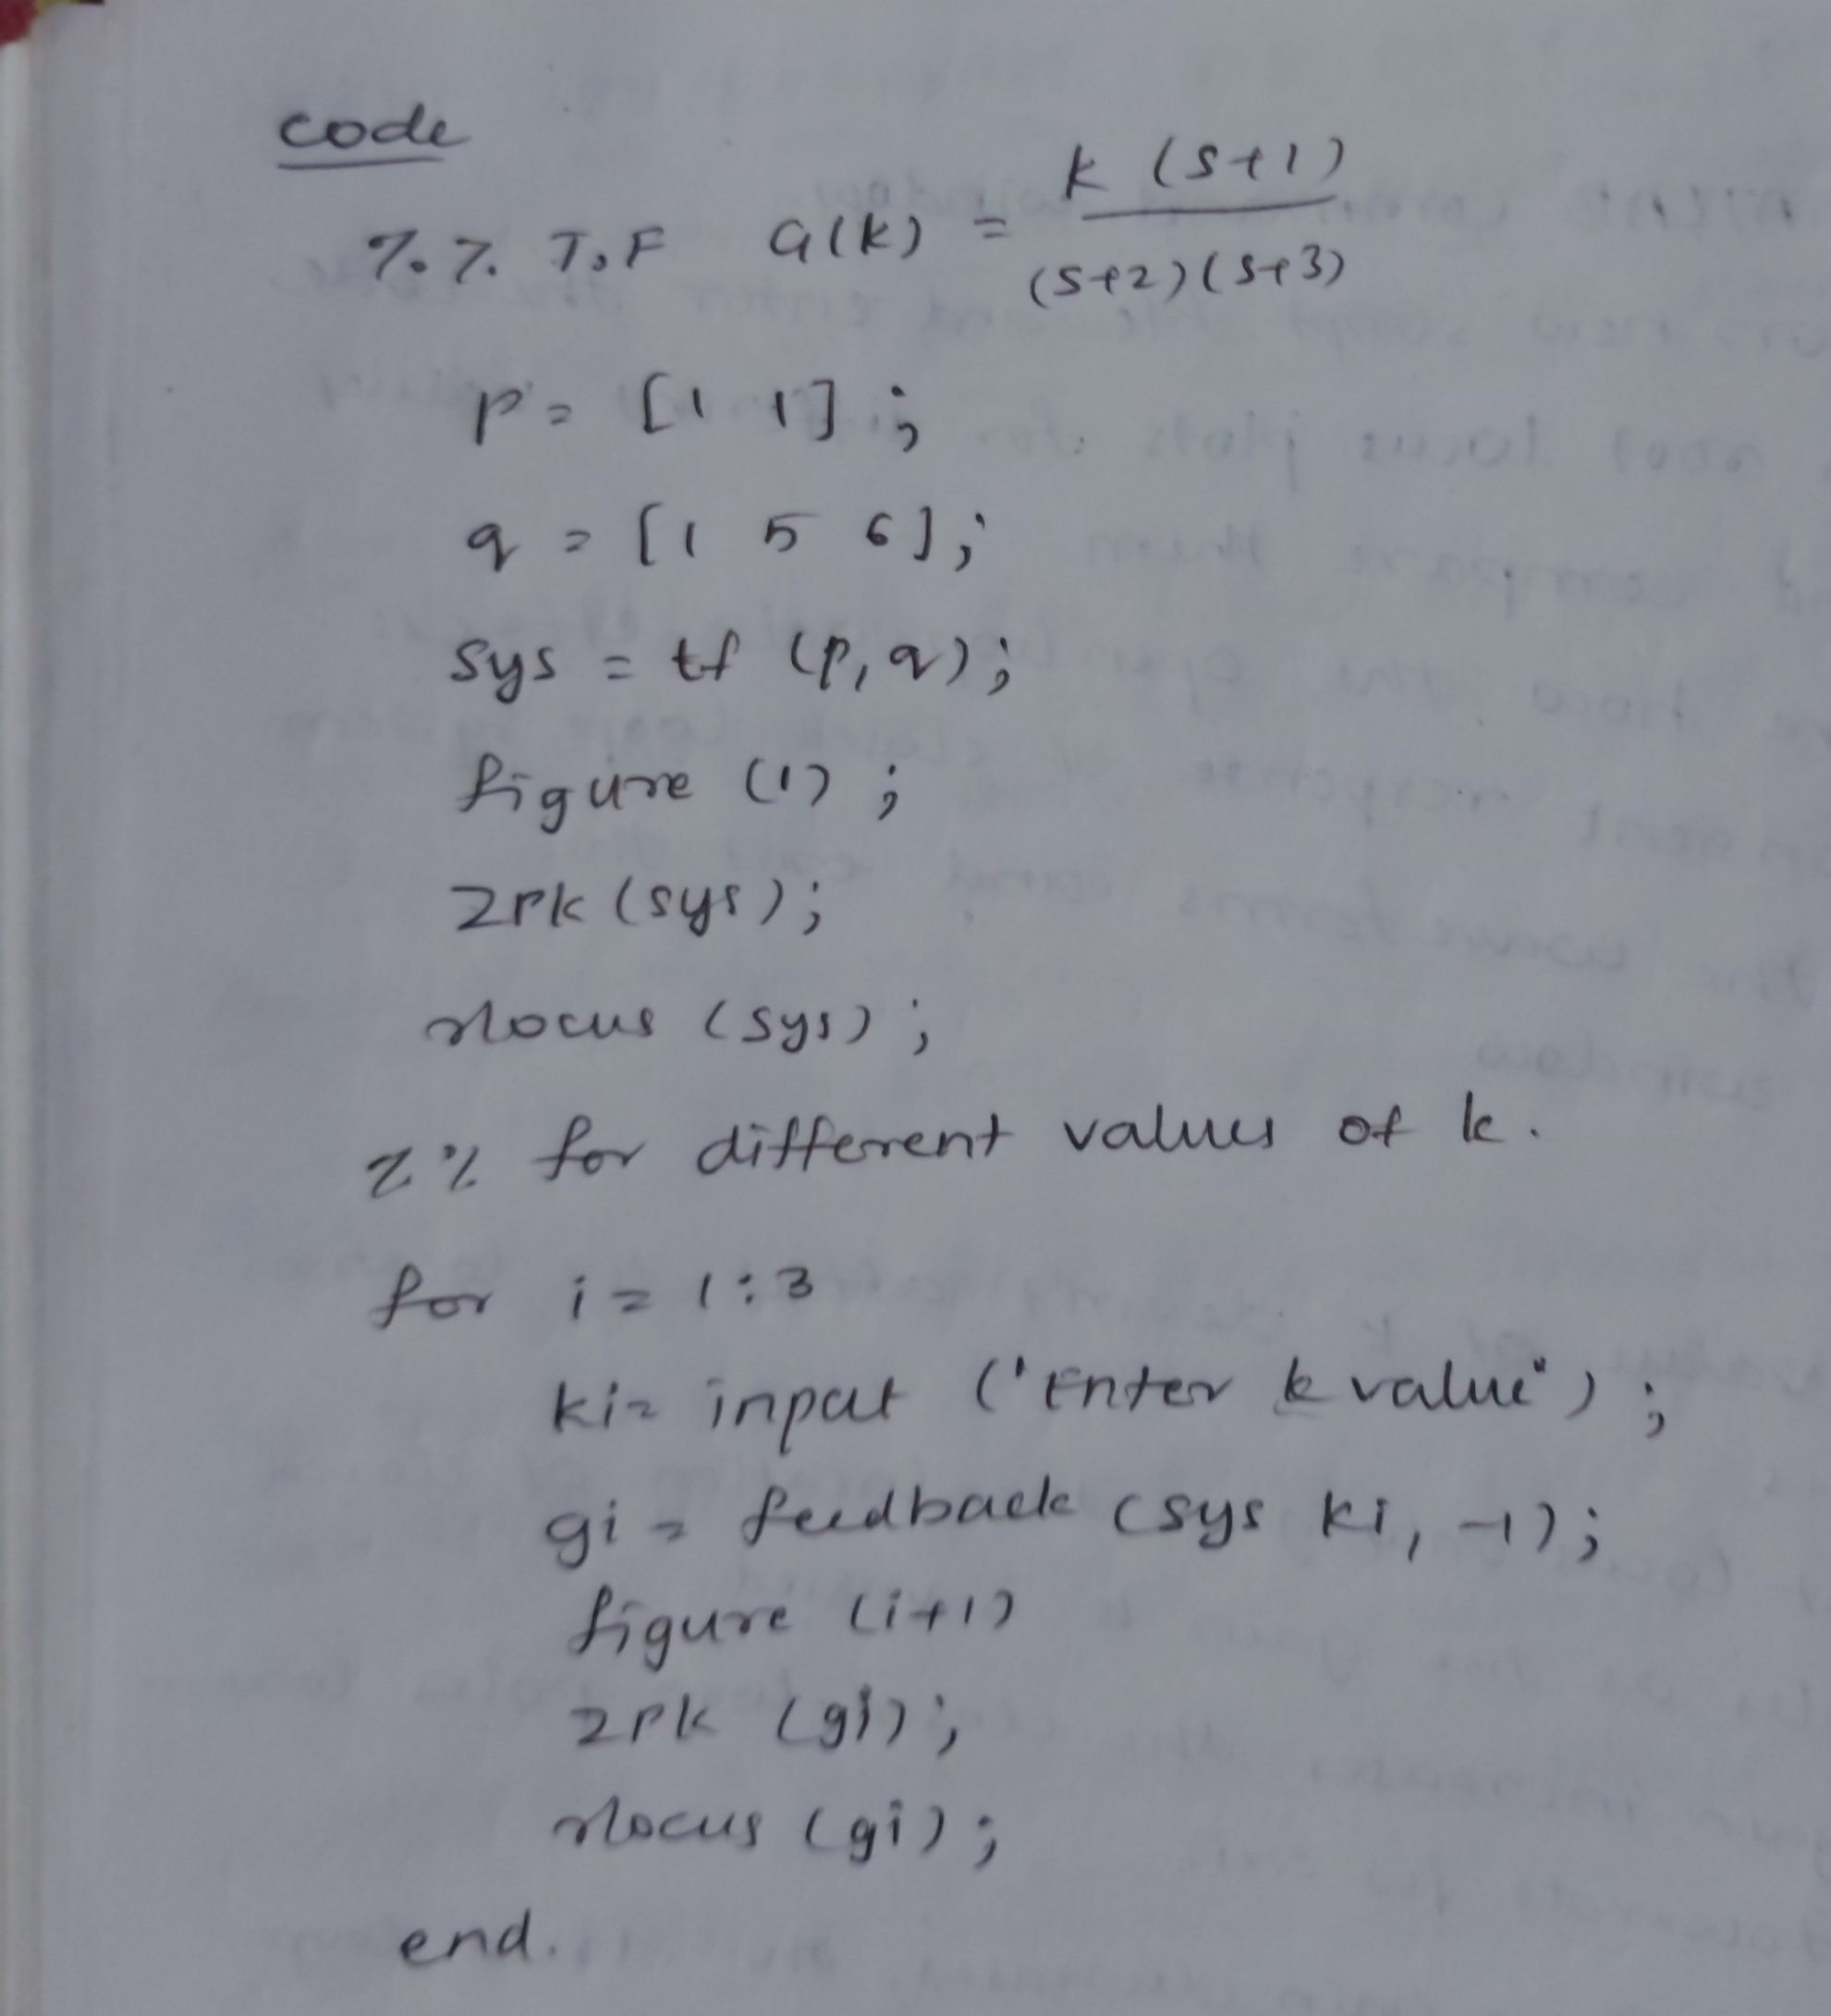 code
%% T.F G(k) = k (s+1) / (s+2)(s+3)
p = [1 1];
q = [1 5 6];
sys = tf (p,q);
figure (1);
zpk (sys);
rlocus (sys);
%% for different values of k.
for i = 1:3
ki = input ('Enter k value');
gi = feedback (sys ki, -1);
figure (i+1)
zpk (gi);
rlocus (gi);
end.